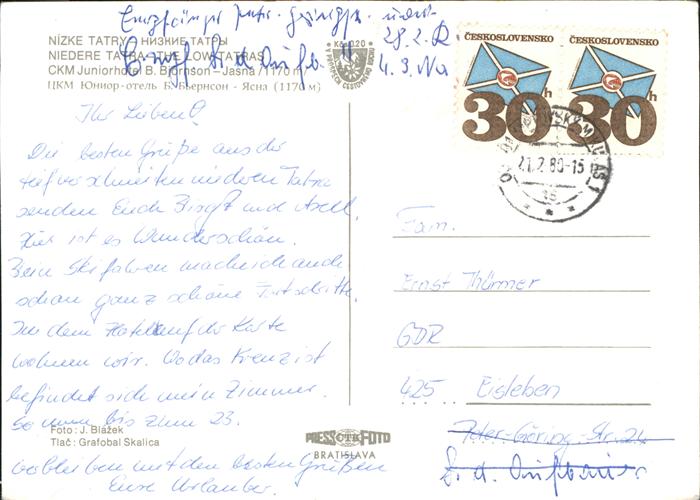 28.2.
4.3.
NÍZKE TATRY НИЗКИЕ ТАТРЫ
NIEDERE TATRA THE LOW TATRAS
CKM Juniorhotel B. Björnson – Jasná (1170 m)
ЦКМ Юниор-отель Б. Бьернсон - Ясна (1170 м)
Kčs 0.20
ČESKOSLOVENSKO
30h
ČESKOSLOVENSKO
30h
21.2.80-15
Ihr Lieben!
Die besten Grüße aus der
tiefverschneiten niederen Tatra
senden Euch Birgit und Axel.
Hier ist es Wunderschön.
Beim Skifahren mache ich auch
schon ganz schöne Fortschritte.
In dem Hotel auf der Karte
wohnen wir. Wo das Kreuz ist
befindet sich mein Zimmer.
So nun bis zum 23.
verbleiben mit den besten Grüßen
Eure Urlauber.
Foto: J. Blažek
Tlač: Grafobal Skalica
PRESSFOTO
ČTK
BRATISLAVA
Fam.
Ernst Thürmer
GDR
425 Eisleben
Peter-Göring-Str. 24